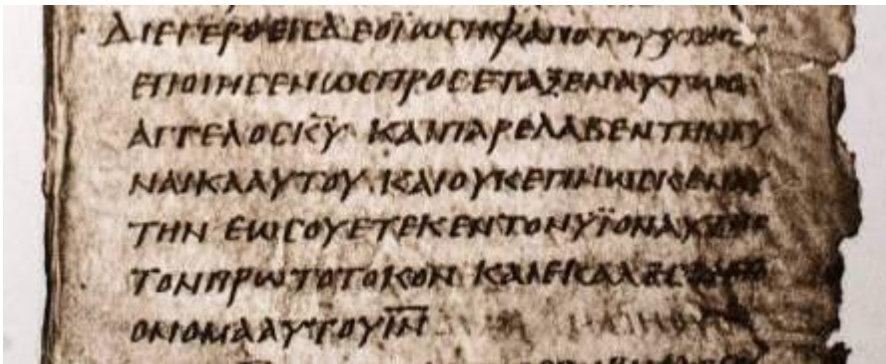 ΔΙΕΓΕΡΘΕΙϹΔΕΟΪΩϹΗΦΑΠΟΤΟΥΥΠΝΟΥ
ΕΠΟΙΗϹΕΝΩϹΠΡΟϹΕΤΑΞΕΝΑΥΤΩΟ
ΑΓΓΕΛΟϹΚ̅Υ̅ ΚΑΙΠΑΡΕΛΑΒΕΝΤΗΝΓΥ
ΝΑΙΚΑΑΥΤΟΥ ΚΑΙΟΥΚΕΓΙΝΩϹΚΕΝΑΥ
ΤΗΝ ΕΩϹΟΥΕΤΕΚΕΝΤΟΝΥΪΟΝΑΥΤΗϹ
ΤΟΝΠΡΩΤΟΤΟΚΟΝ ΚΑΙΕΚΑΛΕϹΕΝΤΟ
ΟΝΟΜΑΑΥΤΟΥΙ̅Ν̅